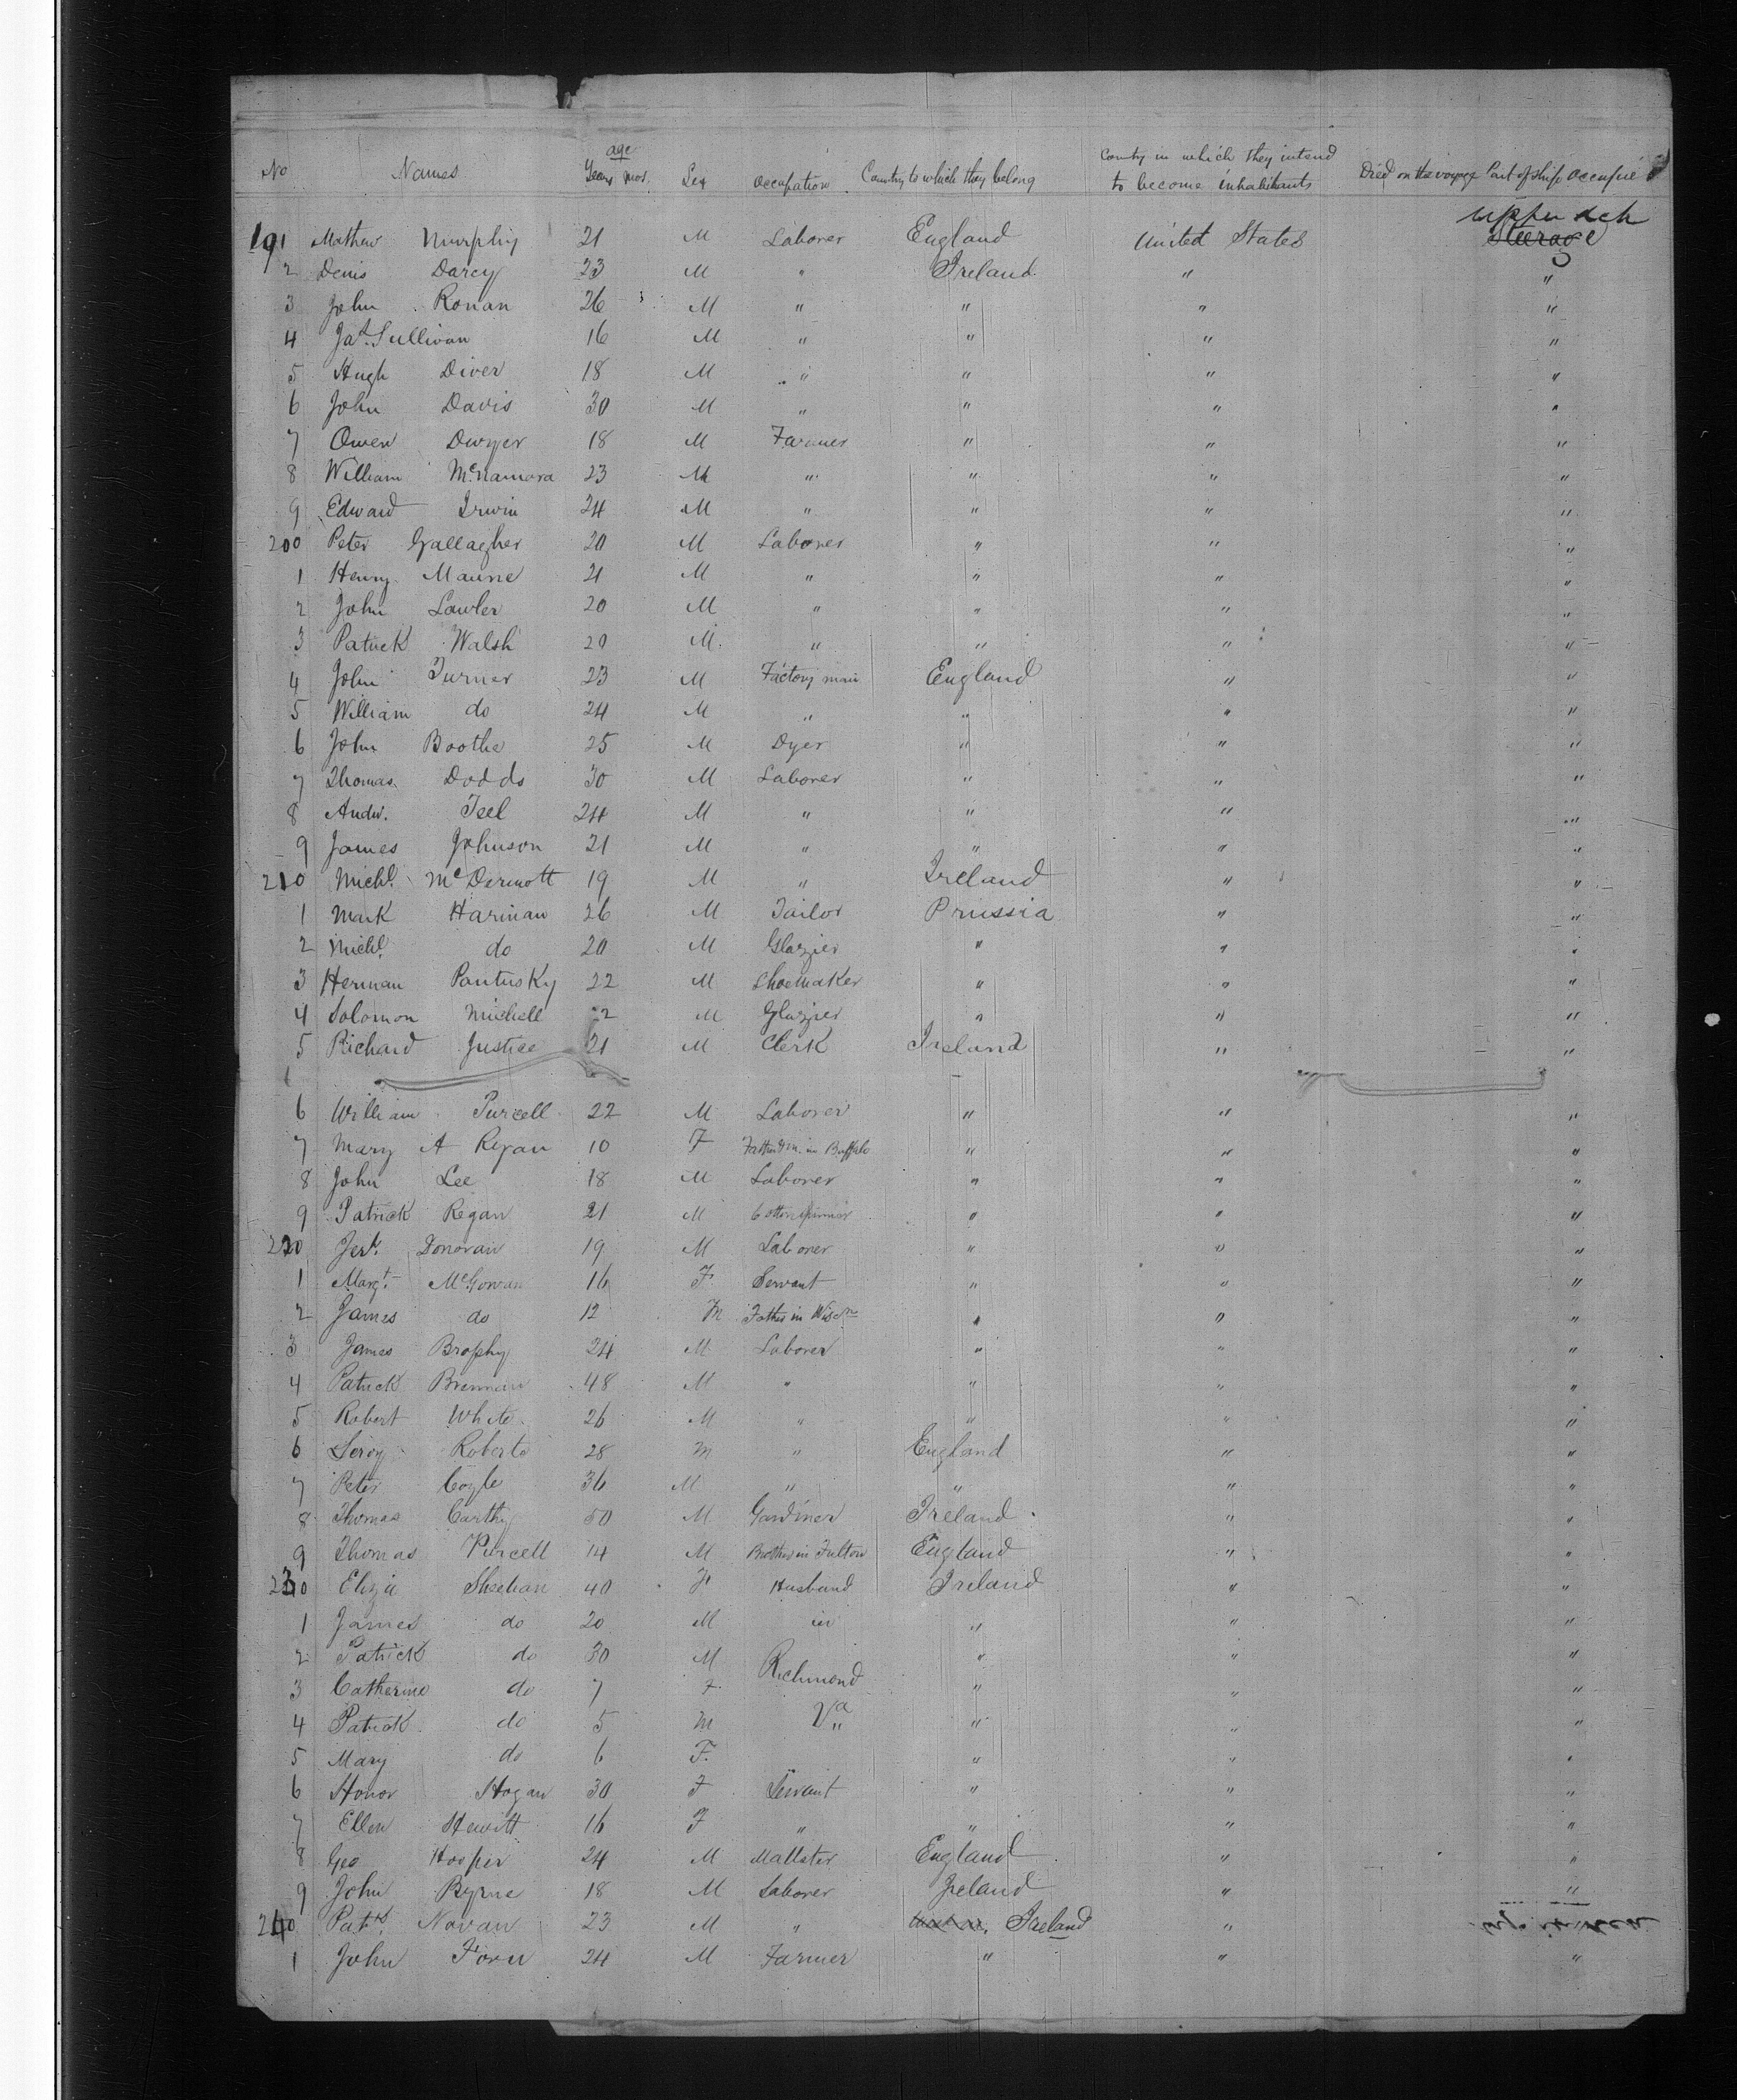 No Names age Years mos. Sex Occupation Country to which they belong County in which they intend to become inhabitants Died on the voyage Part of Ship occupied
191 Mathew Murphy 21 M Laborer England United States Upper deck Steerage
2 Denis Darcy 23 M " Ireland " "
3 John Ronan 26 M " " " "
4 Jas. Sullivan 16 M " " " "
5 Hugh Diver 18 M " " " "
6 John Davis 30 M " " " "
7 Owen Dwyer 18 M Farmer " " "
8 William McNamara 23 M " " " "
9 Edward Irwin 24 M " " " "
200 Peter Gallagher 20 M Laborer " " "
1 Henry Maune 21 M " " " "
2 John Lawler 20 M " " " "
3 Patrick Walsh 20 M " " " "
4 John Turner 23 M Factory man England " "
5 William do 24 M " " " "
6 John Boothe 25 M Dyer " " "
7 Thomas Dodds 30 M Laborer " " "
8 Andw. Teel 24 M " " " "
9 James Johnson 21 M " " " "
210 Michl. McDermott 19 M " Ireland " "
1 Mark Harman 26 M Tailor Prussia " "
2 Michl. do 20 M Glazier " " "
3 Herman Pantusky 22 M Shoemaker " " "
4 Solomon Michell 22 M Glazier " " "
5 Richard Justice 21 M Clerk Ireland " "
6 William Purcell 22 M Laborer " " "
7 Mary A Regan 10 F Father in Buffalo " " "
8 John Lee 18 M Laborer " " "
9 Patrick Regan 21 M Cotton spinner " " "
220 Jerh. Donovan 19 M Laborer " " "
1 Margt. McGowan 16 F Servant " " "
2 James do 12 M Father in Wiscn " " "
3 James Brophy 24 M Laborer " " "
4 Patrick Brennan 48 M " " " "
5 Robert White 26 M " " " "
6 Leroy Roberts 28 M " England " "
7 Peter Coyle 36 M " " " "
8 Thomas Carthy 50 M Gardiner Ireland " "
9 Thomas Purcell 14 M Brother in Fulton England " "
230 Eliza Sheehan 40 F Husband Ireland " "
1 James do 20 M in " " "
2 Patrick do 30 M Richmond " " "
3 Catherine do 7 F " " "
4 Patrick do 5 M Va " " " "
5 Mary do 6 F " " "
6 Honor Hogan 30 F Servant " " "
7 Ellen Hewitt 16 F " " " "
8 Geo Hosper 24 M Maltster England " "
9 John Byrne 18 M Laborer Ireland " "
240 Patk. Navan 23 M " Ireland "
1 John Forn 24 M Farmer " " "